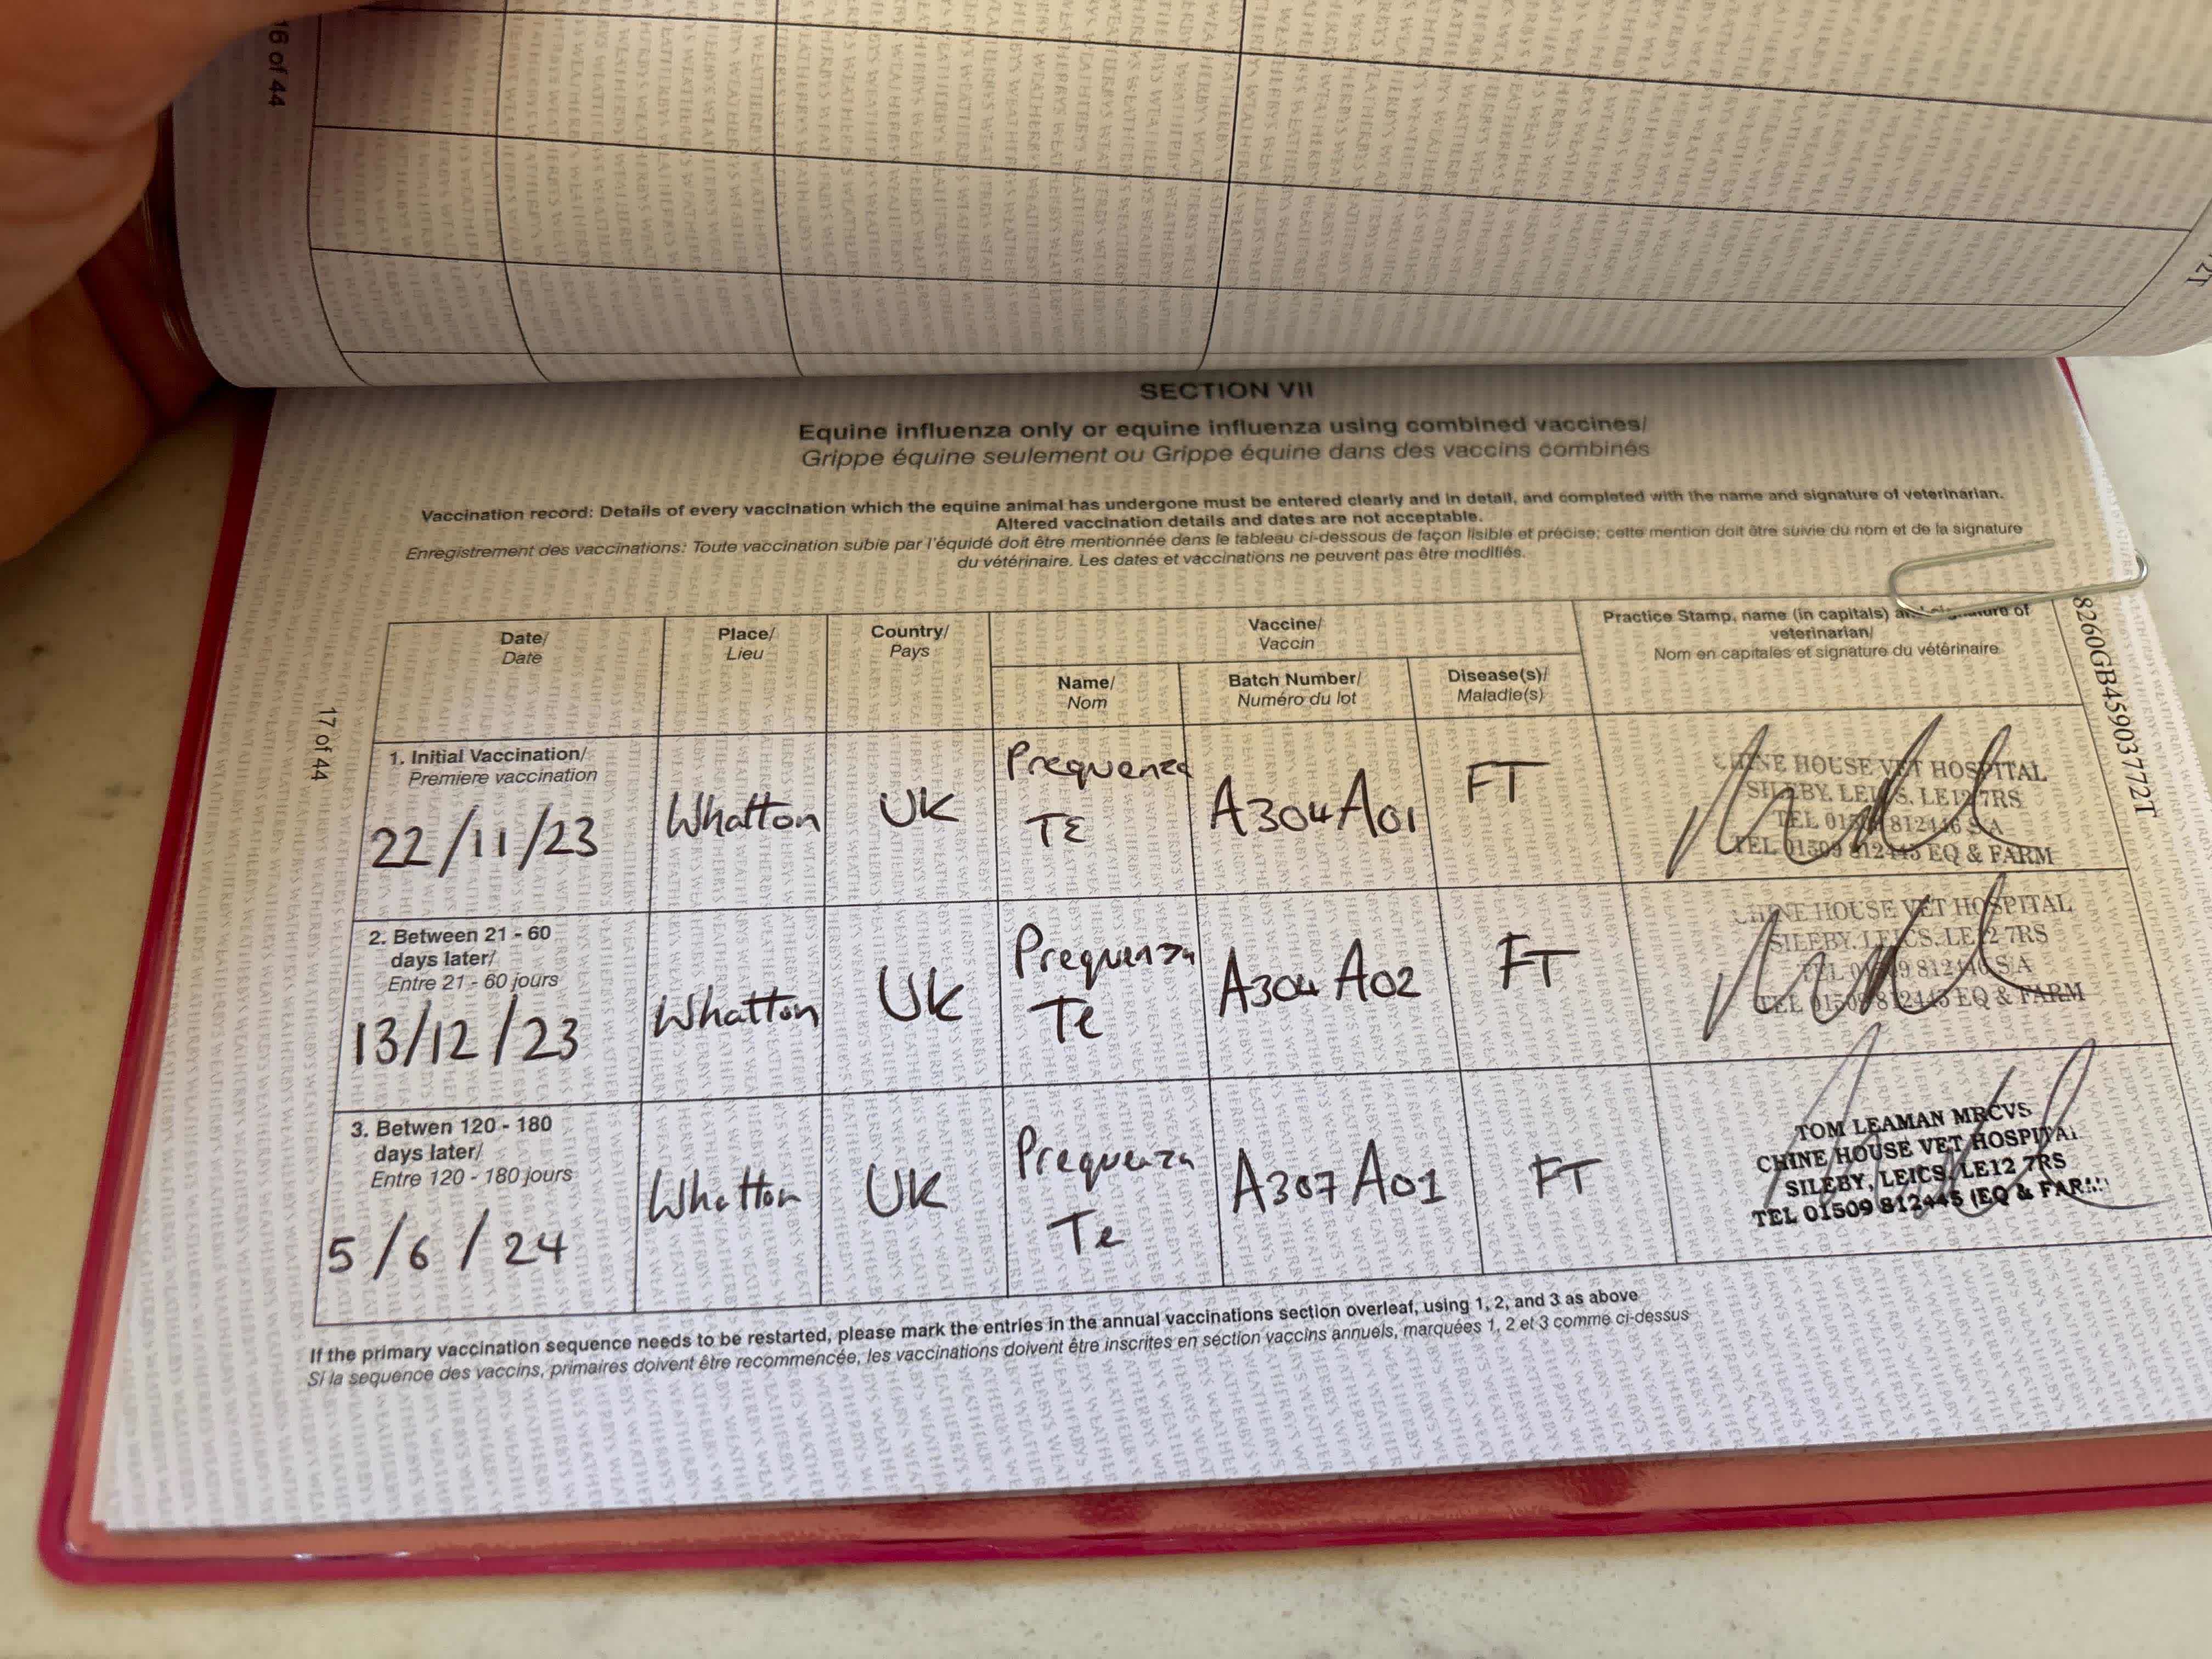 16 of 44
SECTION VII
Equine influenza only or equine influenza using combined vaccines/
Grippe équine seulement ou Grippe équine dans des vaccins combinés
Vaccination record: Details of every vaccination which the equine animal has undergone must be entered clearly and in detail, and completed with the name and signature of veterinarian.
Altered vaccination details and dates are not acceptable.
Enregistrement des vaccinations: Toute vaccination subie par l'équidé doit être mentionnée dans le tableau ci-dessous de façon lisible et précise; cette mention doit être suivie du nom et de la signature
du vétérinaire. Les dates et vaccinations ne peuvent pas être modifiés.
Date/
Date
Place/
Lieu
Country/
Pays
Vaccine/
Vaccin
Name/
Nom
Batch Number/
Numéro du lot
Disease(s)/
Maladie(s)
Practice Stamp, name (in capitals) and signature of
veterinarian/
Nom en capitales et signature du vétérinaire
8260GB45903772T
17 of 44
1. Initial Vaccination/
Premiere vaccination
22/11/23
Whatton
UK
Prequenza
TE
A304A01
FT
CHINE HOUSE VET HOSPITAL
SILEBY, LEICS. LE12 7RS
TEL 01509 812446 S/A
TEL 01509 812445 EQ & FARM
2. Between 21 - 60
days later/
Entre 21 - 60 jours
13/12/23
Whatton
UK
Prequenza
Te
A304A02
FT
CHINE HOUSE VET HOSPITAL
SILEBY, LEICS. LE12 7RS
TEL 01509 812446 S/A
TEL 01509 812445 EQ & FARM
3. Betwen 120 - 180
days later/
Entre 120 - 180 jours
5/6/24
Whatton
UK
Prequenza
Te
A307A01
FT
TOM LEAMAN MRCVS
CHINE HOUSE VET HOSPITAL
SILEBY, LEICS. LE12 7RS
TEL 01509 812445 (EQ & FARM)
If the primary vaccination sequence needs to be restarted, please mark the entries in the annual vaccinations section overleaf, using 1, 2, and 3 as above
Si la sequence des vaccins, primaires doivent être recommencée, les vaccinations doivent être inscrites en séction vaccins annuels, marquées 1, 2 et 3 comme ci-dessus